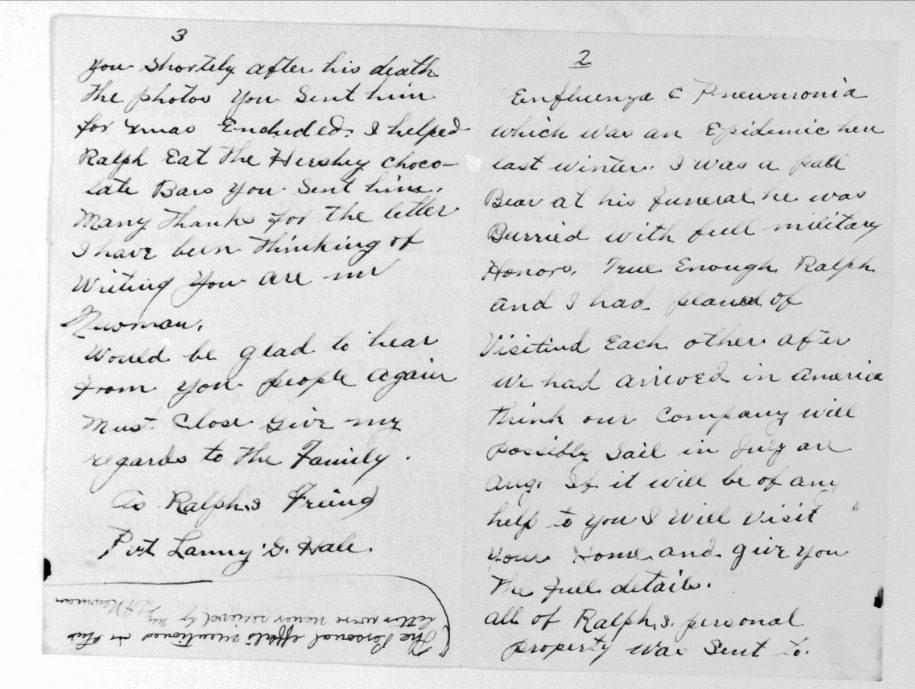 2
Einfluenza & Pneumonia
which was an Epidemic here
last winter. I was a pall
Bear at his funeral he was
Burried with full military
Honors. True Enough Ralph
and I had planed of
Visitind Each other after
we had arived in America
think our Company will
possibly Sail in July are
Aug. If it will be of any
help to you I will visit
your Home and give you
the full detail.
all of Ralph,s personal
property was Sent to.
3
you shortely after his death
the photos you Sent him
for xmas Encluded. I helped
Ralph Eat the Hershey choco-
late Bars you Sent him.
Many thanks for the letter
I have been thinking of
writing you are mr
Newman.
Would be glad to hear
from you people again
must close give my
regards to the Family.
As Ralph,s Friend
Pvt Lanny G. Hale.
(The Personal effects mentioned in this
letter were never received by me
Newman